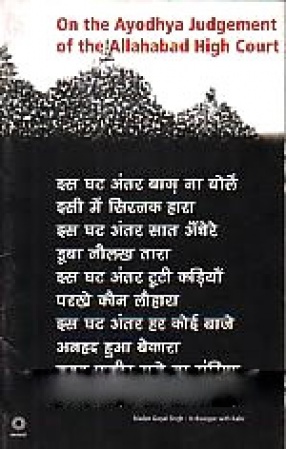 On the Ayodhya Judgement
of the Allahabad High Court
इस घट अंतर बाग़ ना बोलें
इसी में सिरनक हारा
इस घट अंतर सात अँधेरे
डूबा नौलख तारा
इस घट अंतर टूटी कड़ियाँ
परखे कौन लौहारा
इस घट अंतर हर कोई बाजे
अनहद हुआ बेकारा
Madan Gopal Singh